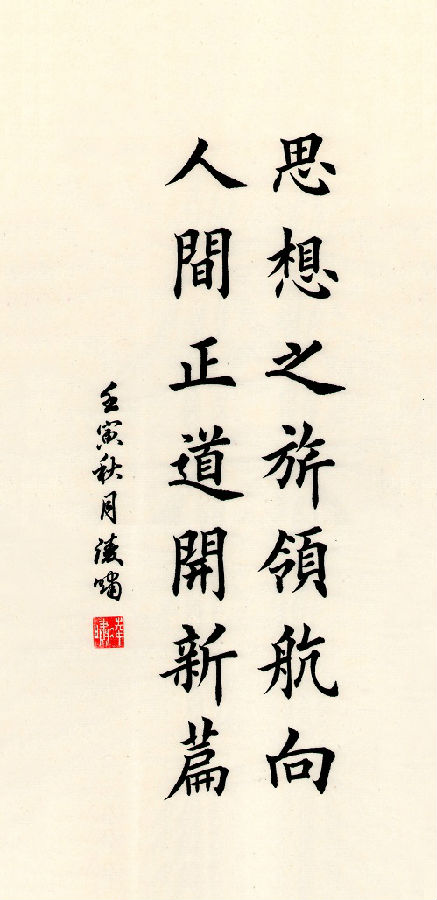 思想之旂領航向
人間正道開新篇
壬寅秋月